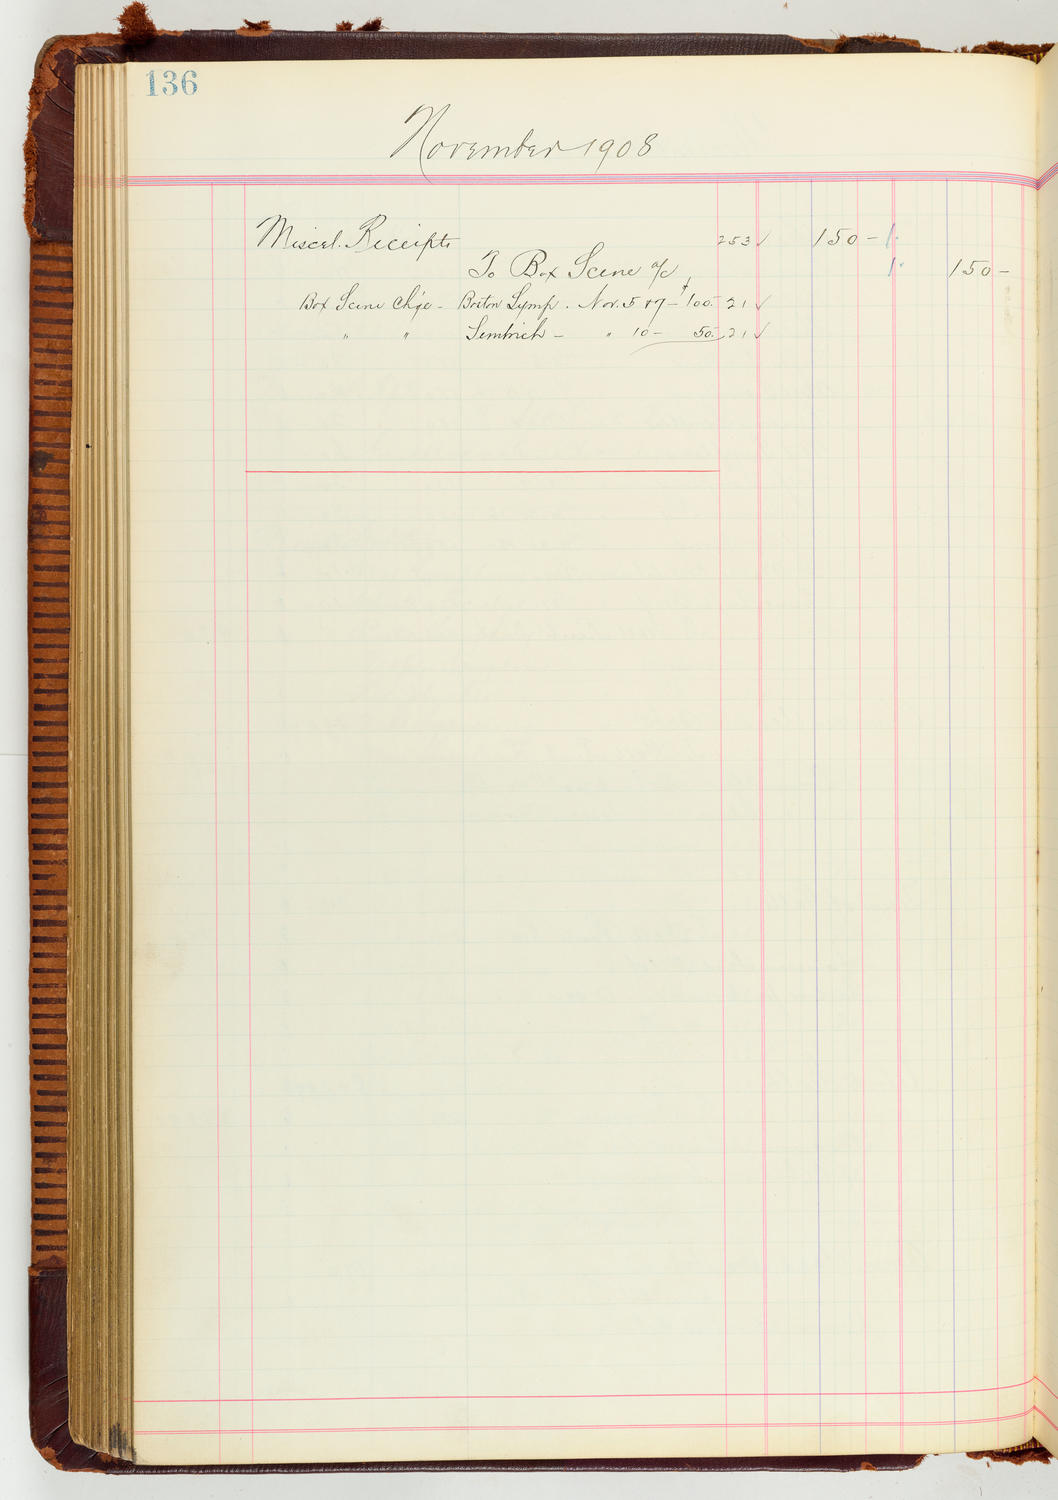 136
November 1908
Miscel. Receipts 253 ✓ 150 -
To Box Scene a/c 150 -
Box Scene Chge - Boston Symp. Nov. 5 & 7 - $100.- 21 ✓
" " Sembrich - " 10 - 50.- 21 ✓